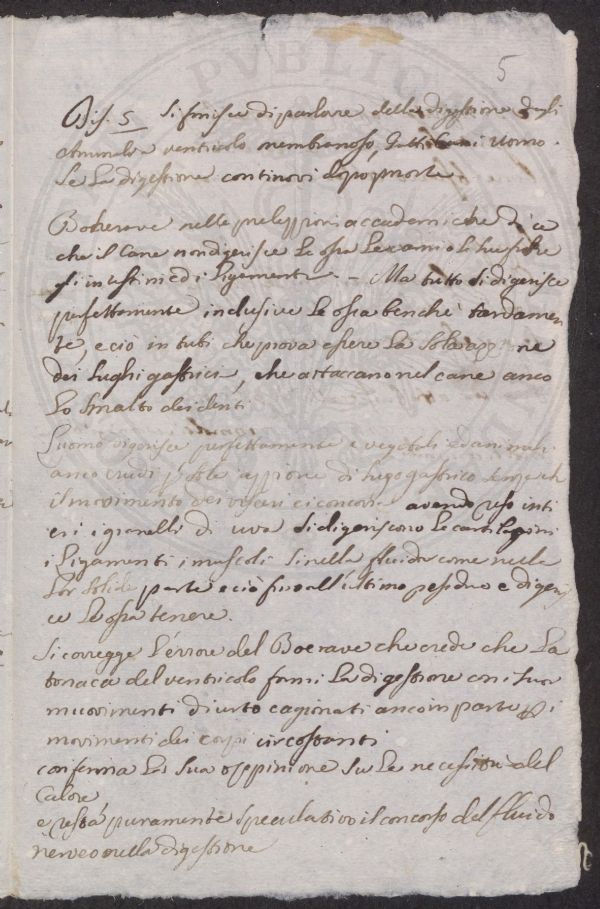 5
Dis. 5 si finisce di parlare della digestione degli
Animali a venticolo membranoso, Gatti Cani Uomo.
Se la digestione continovi dopo morte.
Boherave nelle prelezzioni accademiche dice
che il Cane non digerisce le ossa
gi intestini ed i ligamenti – Ma tutto si digerisce
perfettamente inclusive le ossa benchè tardamen
te, e ciò in tubi che prova essere la sola azzione
dei sughi gastrici, che attaccano nel cane anco
lo smalto dei denti
L'uomo digerisce perfettamente e vegetali ed animali
anco crudi p sole azzione di sugo gastrico senza ch
il movimento dei visceri ci concora avendo reso inti
eri i granelli di uva si digeriscono le cartilagini
i ligamenti i muscoli si nella fluida come nella
lor solida parte e ciò fino all'ultimo residuo e digeris
ce le ossa tenere.
Si corregge l'errore del Boerave che crede che la
tonaca del ventricolo formi la digestione con i suoi
muovimenti di urto cagionati anco in parte p i
movimenti dei corpi circostanti
conferma la sua oppinione su la necessità del
Calore
e resta puramente speculativo il concorso del fluido
nerveo nella digestione
PVBLIC